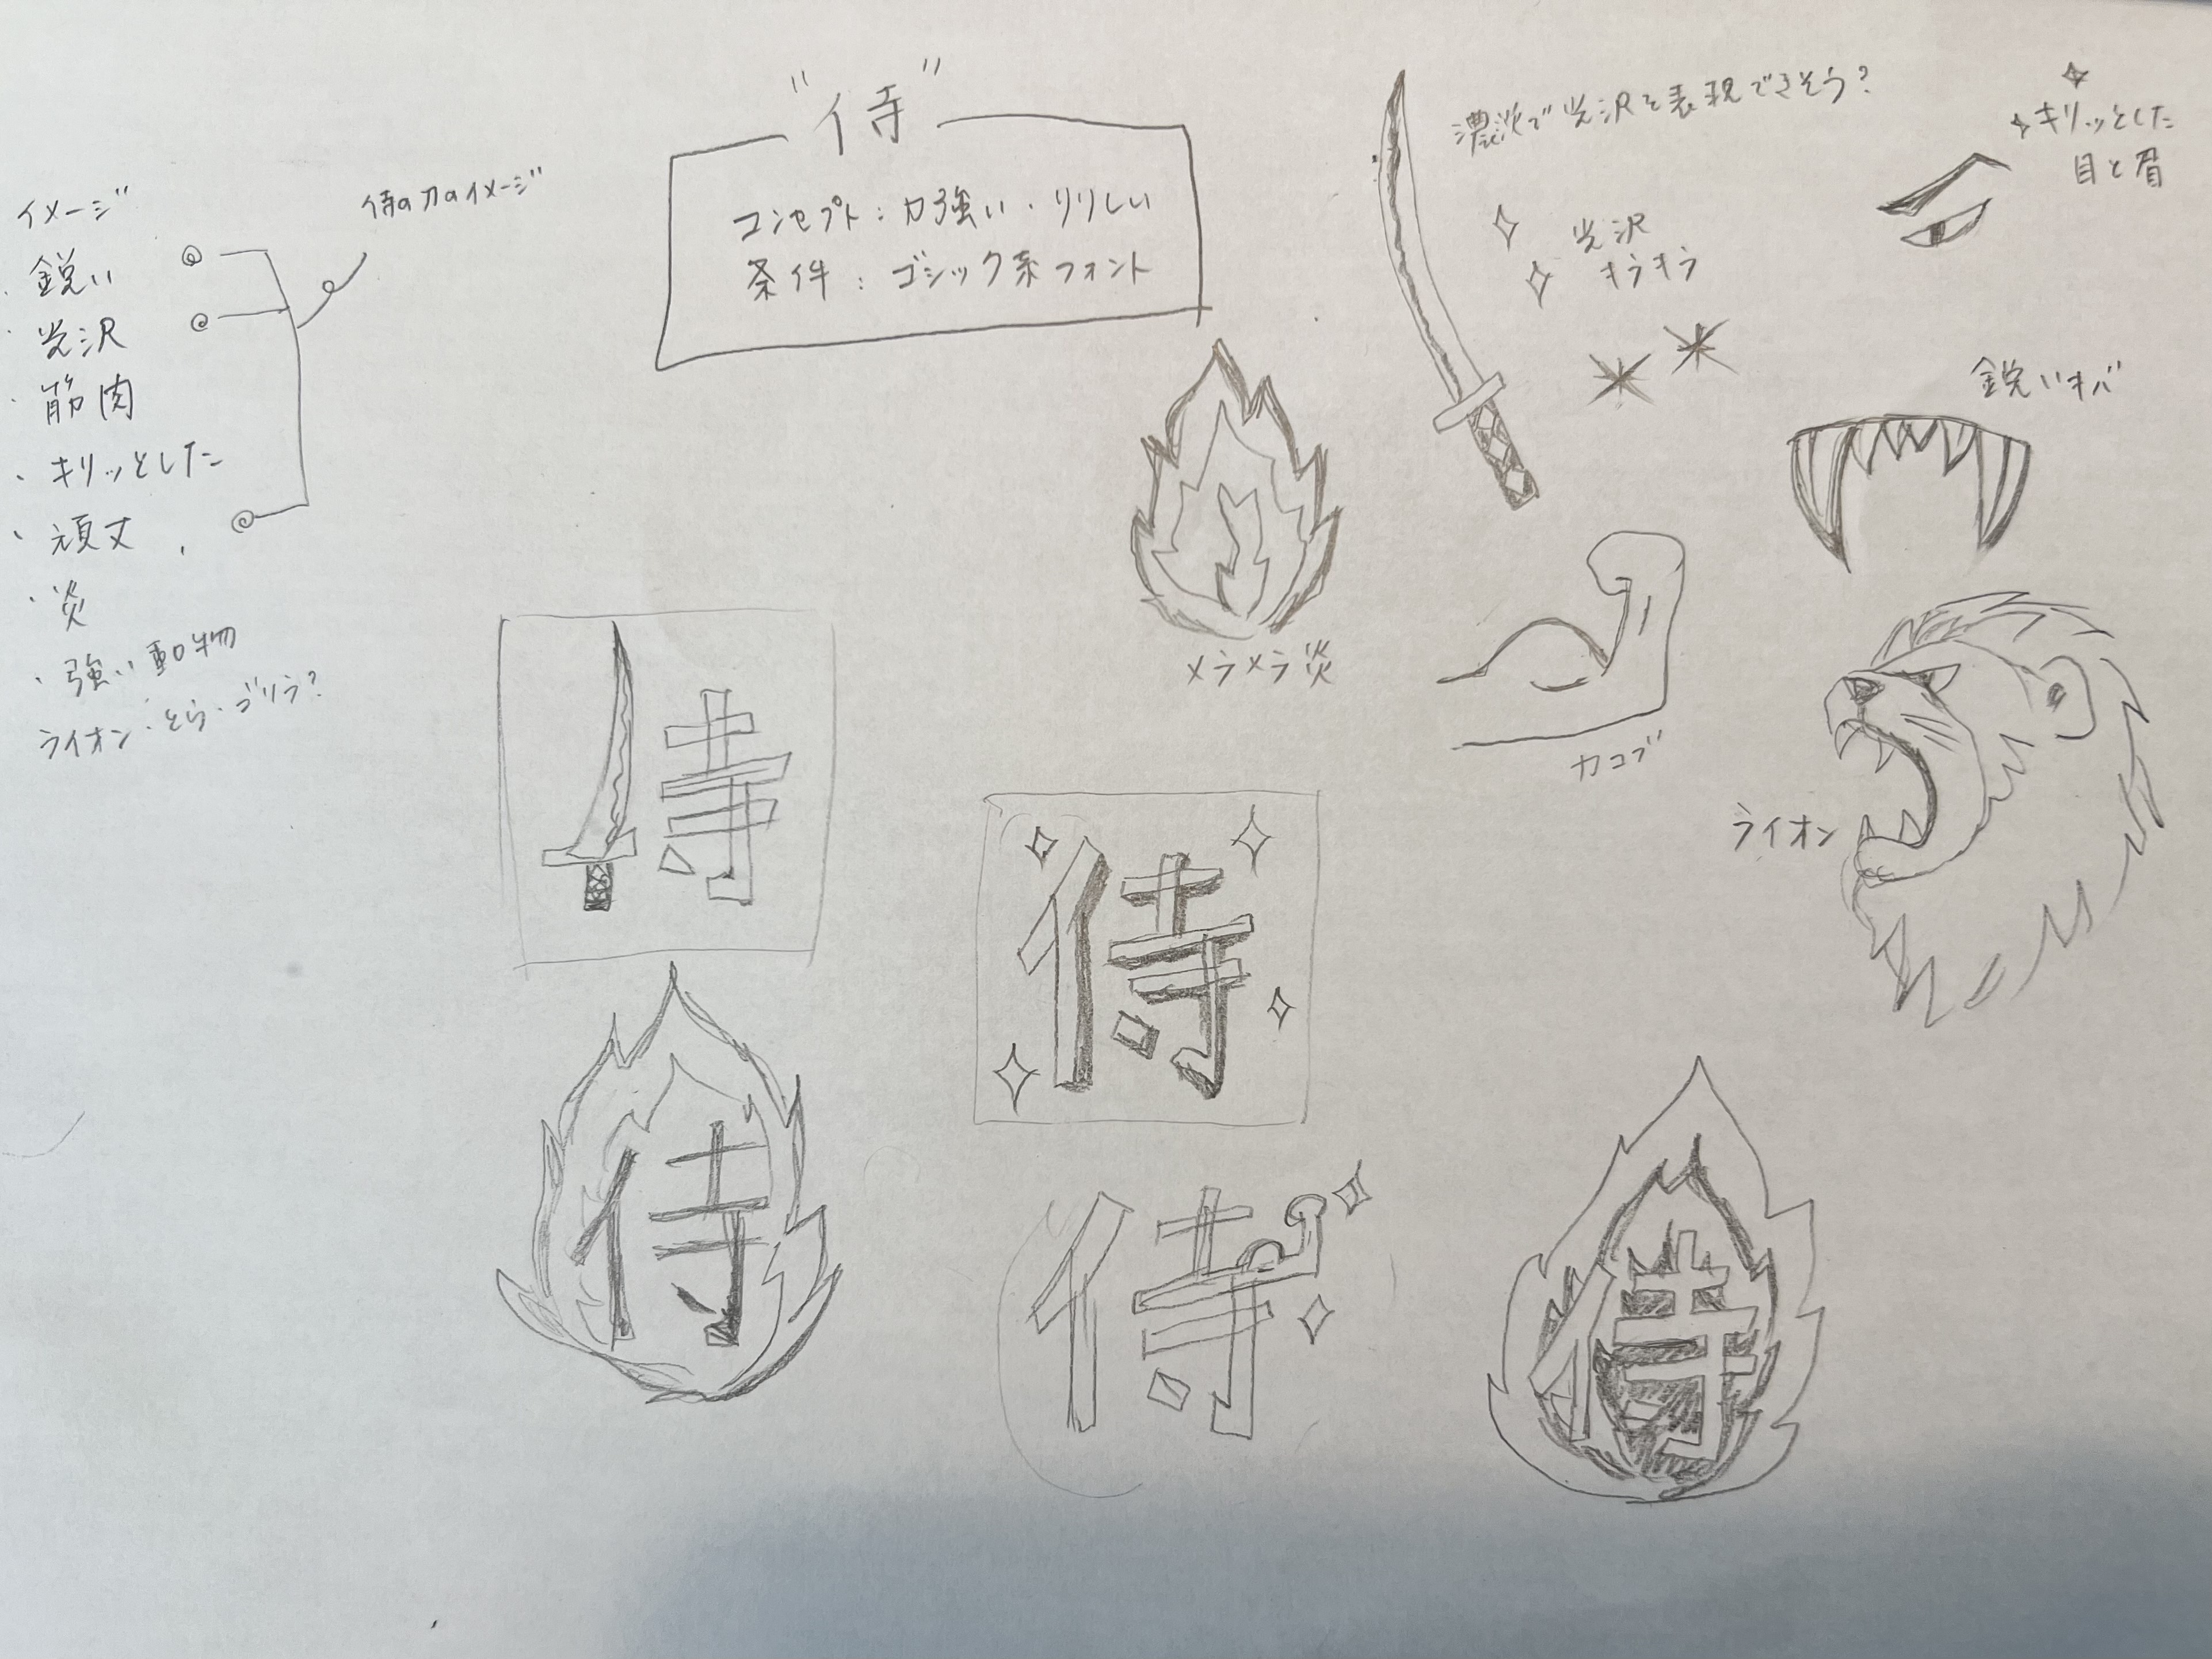 "侍"
コンセプト：力強い・りりしい
条件：ゴシック系フォント
イメージ
・鋭い
・光沢
・筋肉
・キリッとした
・頑丈
・炎
・強い動物
ライオン・とら・ゴリラ？
侍の刀のイメージ
濃淡で光沢を表現できそう？
光沢
キラキラ
キリッとした
目と眉
鋭いキバ
メラメラ炎
力コブ
ライオン
侍
侍
侍
侍
侍